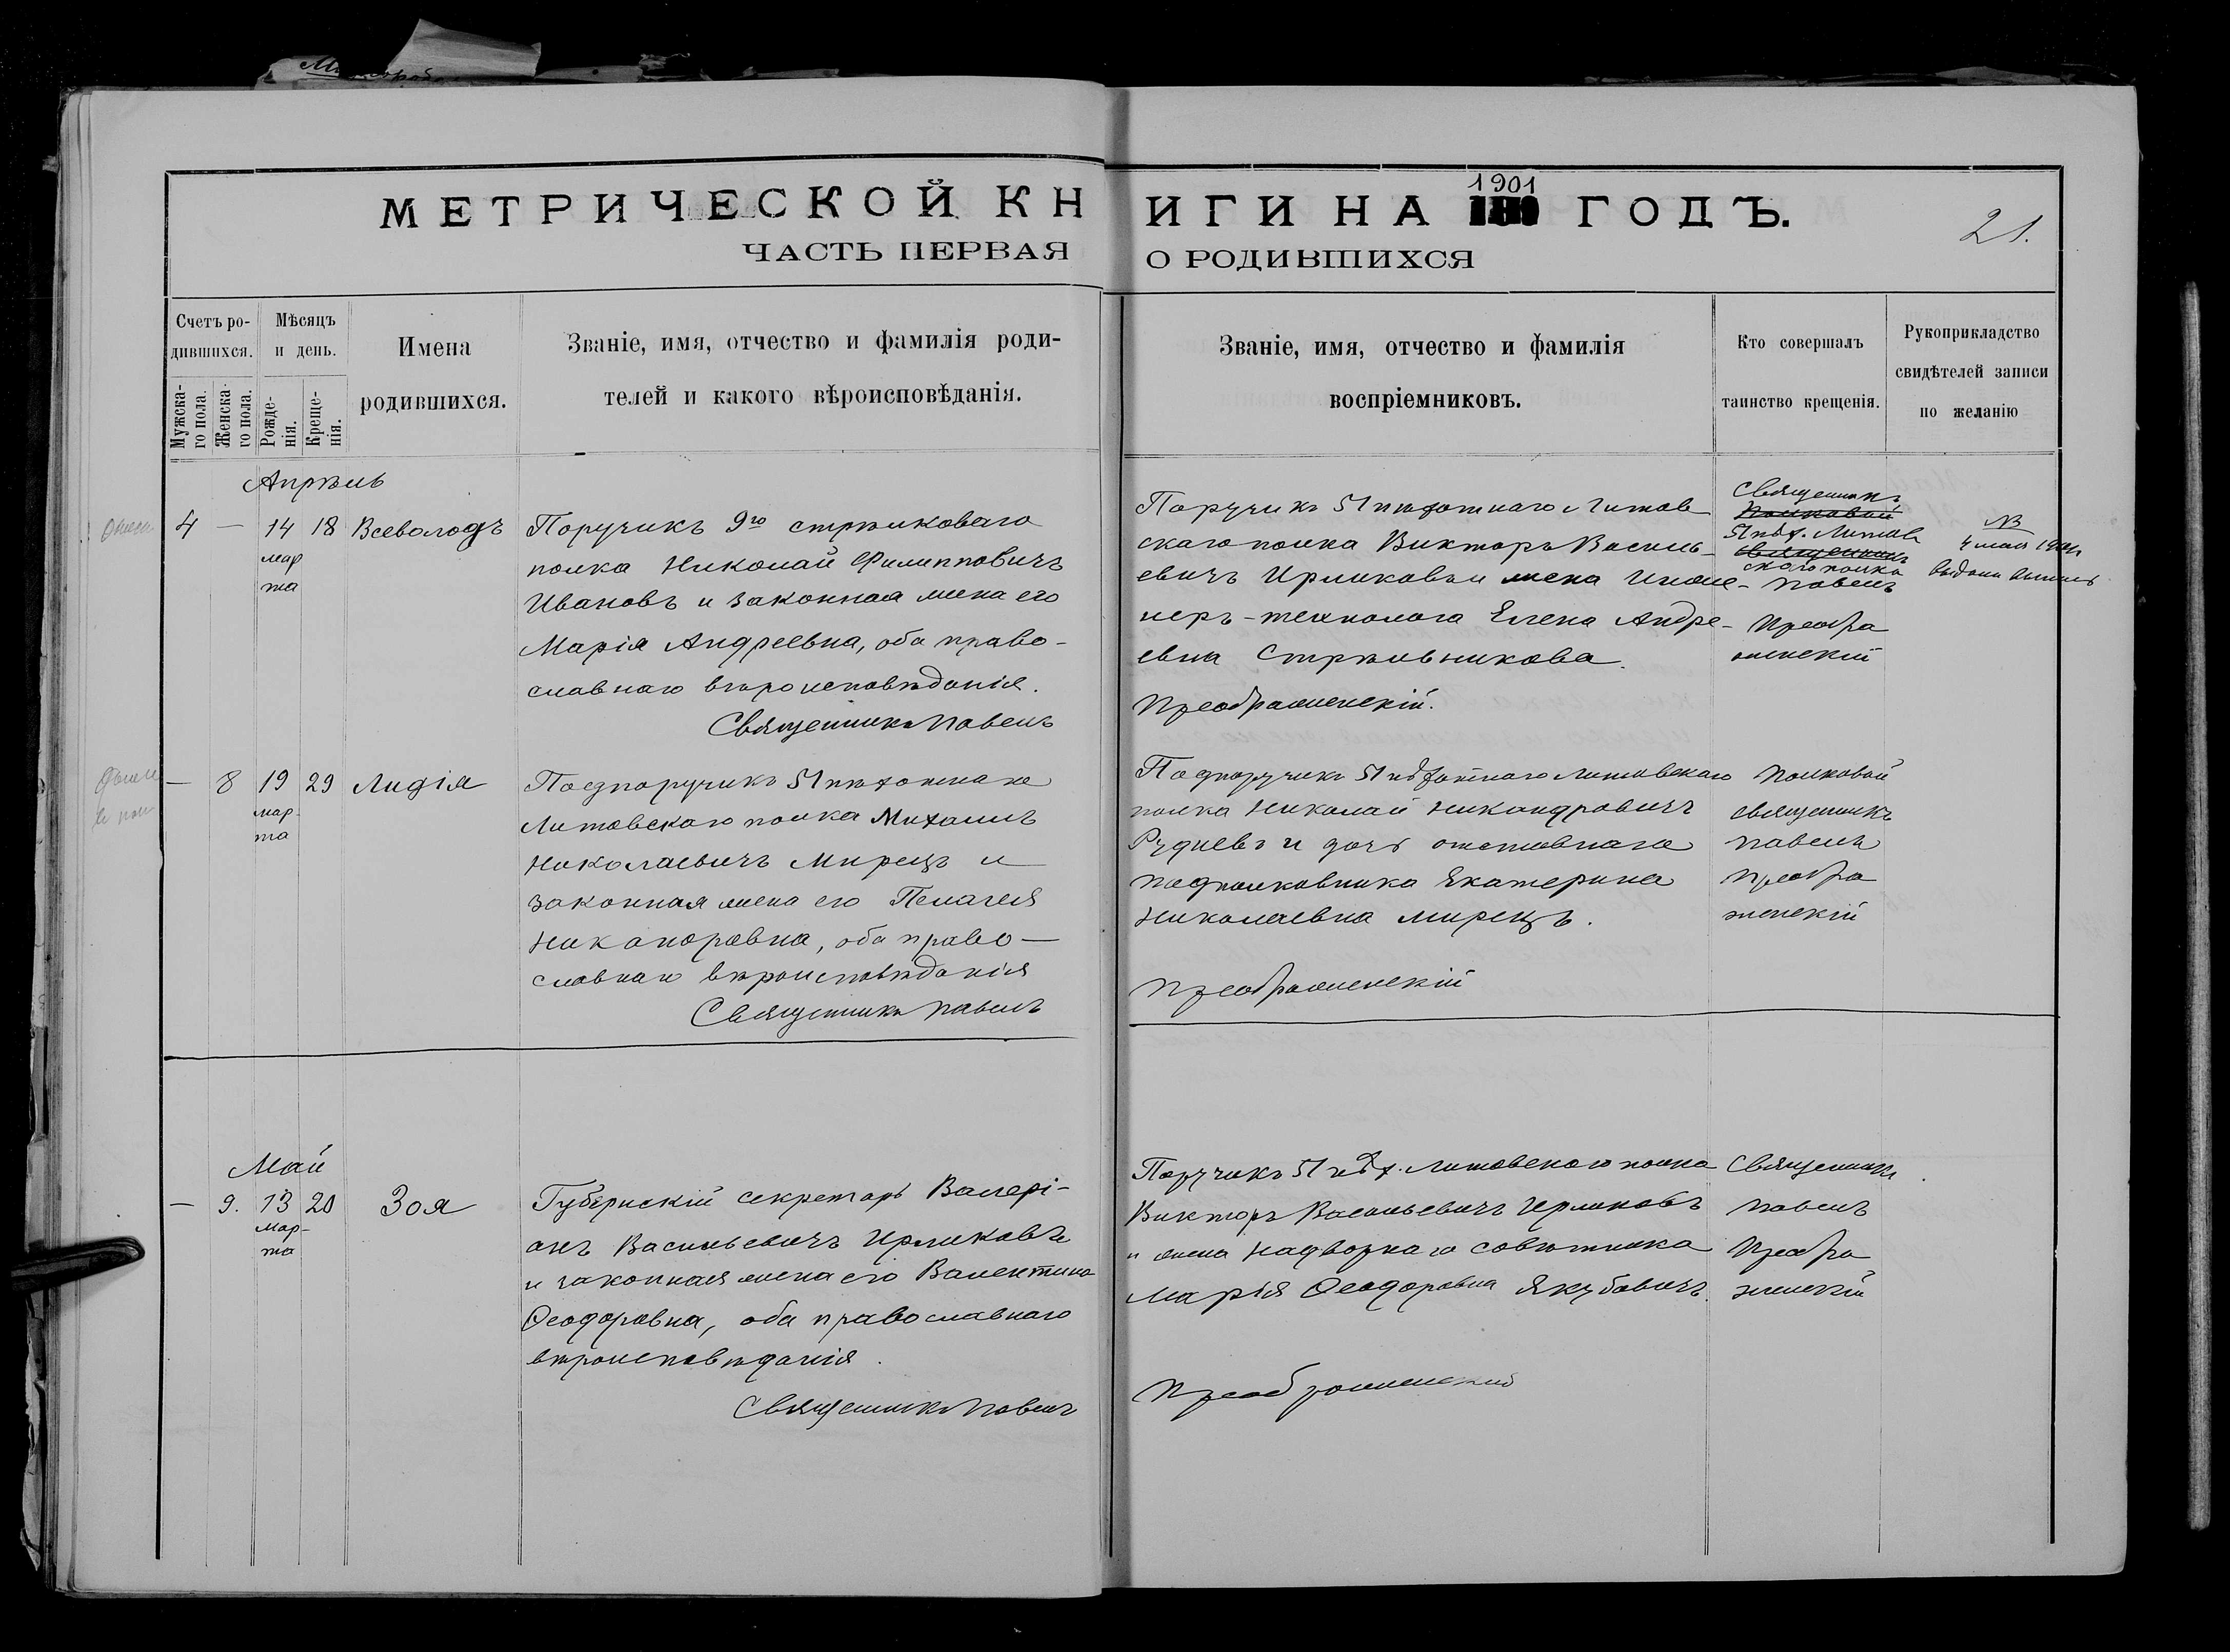 МЕТРИЧЕСКОЙ КНИГИ НА 1901 ГОДЪ.
21.
ЧАСТЬ ПЕРВАЯ О РОДИВШИХСЯ
Счетъ ро-
дившихся.
Мужска-
го пола.
Женска-
го пола.
Мѣсяцъ
и день.
Рожде-
нія.
Креще-
нія.
Имена
родившихся.
Званіе, имя, отчество и фамилія роди-
телей и какого вѣроисповѣданія.
Званіе, имя, отчество и фамилія
воспріемниковъ.
Кто совершалъ
таинство крещенія.
Рукоприкладство
свидѣтелей записи
по желанію
Апрѣль
4 — 14 18 Всеволодъ
мар
та
Поручикъ 9го стрѣлковаго
полка Николай Филипповичъ
Ивановъ и законная жена его
Марія Андреевна, оба право-
славнаго вѣроисповѣданія.
Священникъ Павелъ
Поручикъ 51 пѣхотнаго Литов
скаго полка Викторъ Василь-
евичъ Ирликовъ и жена Инже-
неръ-технолога Елена Андре-
евна Стрѣльникова.
Преображенскій.
Священникъ
Полковой
51 пѣх. Литов
священникъ
скаго полка
Павелъ
Преобра
женскій
№
4 мая
выдана
— 8 19 29 Лидія
мар-
та
Подпоручикъ 51 пѣхотнаго
Литовскаго полка Михаилъ
Николаевичъ Мирецъ и
законная жена его Пелагея
Никаноровна, оба право—
славнаго вѣроисповѣданія
Священникъ Павелъ
Подпоручикъ 51 пѣхотнаго Литовскаго
полка Николай Никандровичъ
Рудневъ и дочь отставнаго
подполковника Екатерина
Николаевна Мирецъ.
Преображенскій
Полковой
священникъ
Павелъ
Преобра
женскій
Май
— 9. 13 20 Зоя
мар-
та
Губернскій секретарь Валері-
анъ Васильевичъ Ирликовъ
и законная жена его Валентина
Ѳеодоровна, оба православнаго
вѣроисповѣданія.
Священникъ Павелъ
Поручикъ 51 пѣх. Литовскаго полка
Викторъ Васильевичъ Ирликовъ
и жена надворнаго совѣтника
Марія Ѳеодоровна Якубовичъ.
Преображенскій
Священникъ
Павелъ
Преобра
женскій